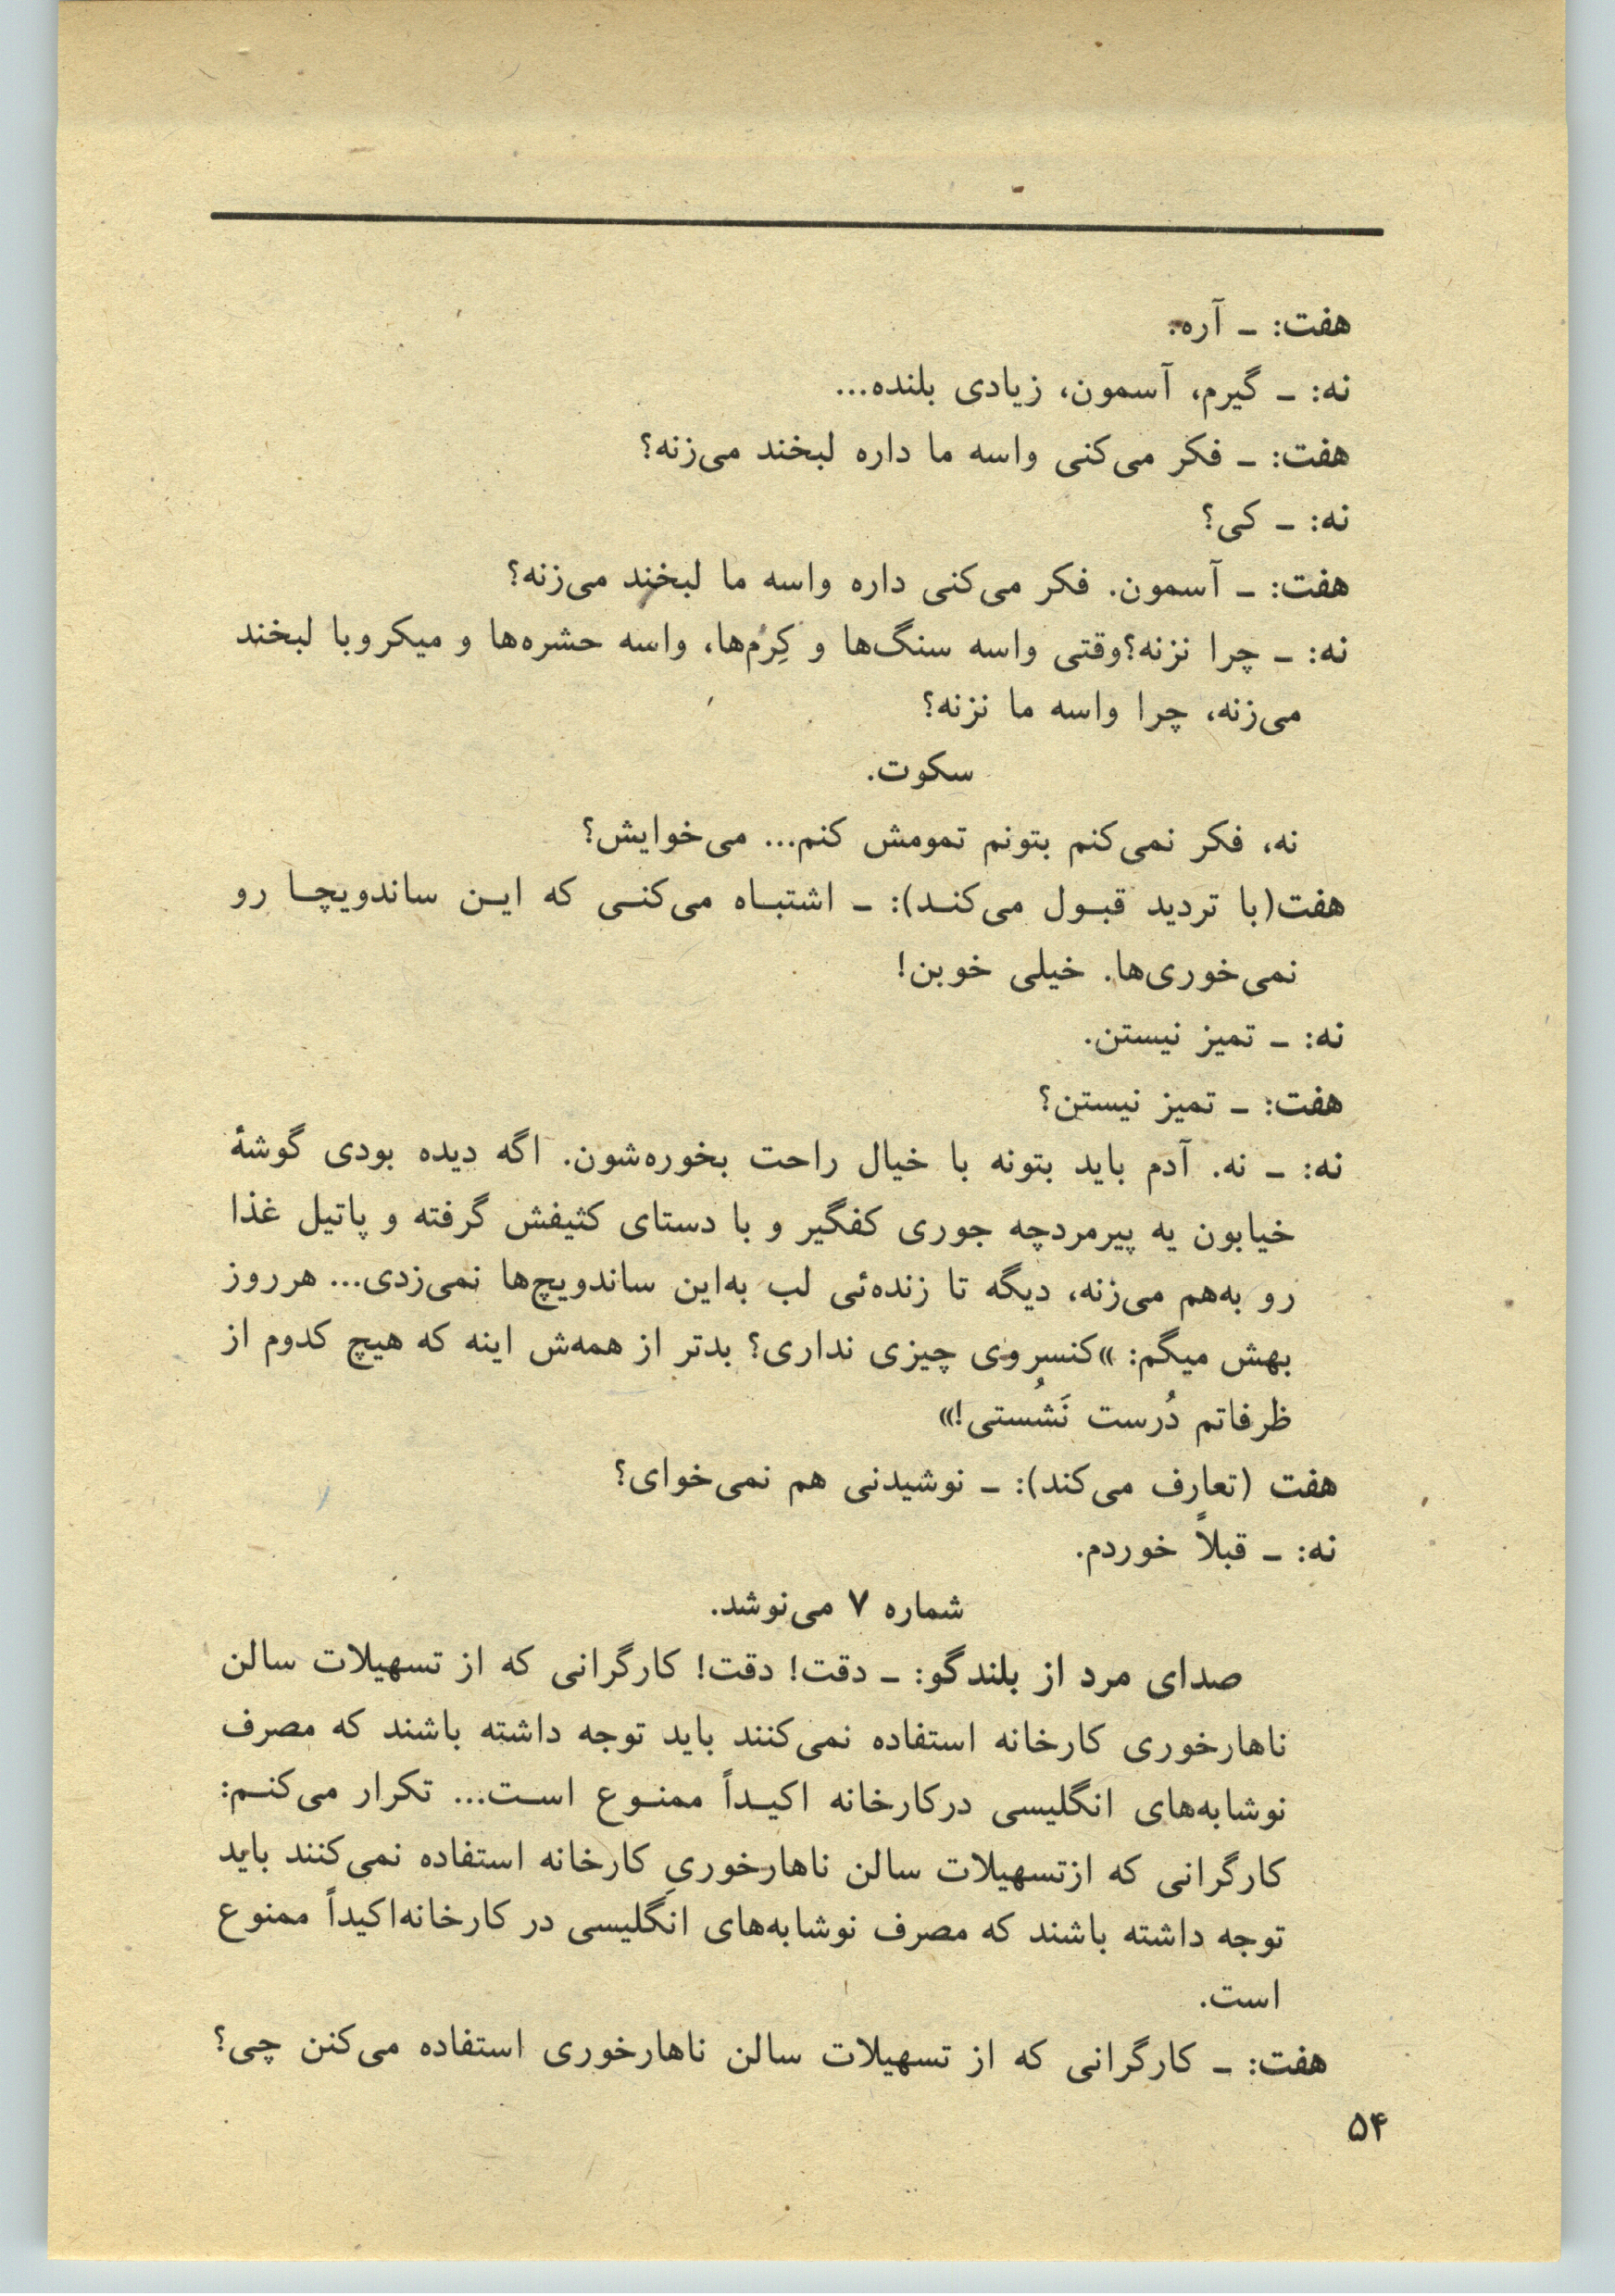 هفت: ـ آره.
نه: ـ گیرم، آسمون، زیادی بلنده...
هفت: ـ فکر می‌کنی واسه ما داره لبخند می‌زنه؟
نه: ـ کی؟
هفت: ـ آسمون. فکر می‌کنی داره واسه ما لبخند می‌زنه؟
نه: ـ چرا نزنه؟وقتی واسه سنگ‌ها و کِرْم‌ها، واسه حشره‌ها و میکروبا لبخند
می‌زنه، چرا واسه ما نزنه؟
سکوت.
نه، فکر نمی‌کنم بتونم تمومش کنم... می‌خوایش؟
هفت(با تردید قبـول می‌کنـد): ـ اشتبـاه می‌کنـی که ایـن ساندویچـا رو
نمی‌خوری‌ها. خیلی خوبن!
نه: ـ تمیز نیستن.
هفت: ـ تمیز نیستن؟
نه: ـ نه. آدم باید بتونه با خیال راحت بخوره‌شون. اگه دیده بودی گوشهٔ
خیابون یه پیرمردچه جوری کفگیر و با دستای کثیفش گرفته و پاتیل غذا
رو به‌هم می‌زنه، دیگه تا زنده‌ئی لب به‌این ساندویچ‌ها نمی‌زدی... هرروز
بهش میگم: »کنسروی چیزی نداری؟ بدتر از همه‌ش اینه که هیچ کدوم از
ظرفاتم دُرست نَشُستی!»
هفت (تعارف می‌کند): ـ نوشیدنی هم نمی‌خوای؟
نه: ـ قبلاً خوردم.
شماره ۷ می‌نوشد.
صدای مرد از بلندگو: ـ دقت! دقت! کارگرانی که از تسهیلات سالن
ناهارخوری کارخانه استفاده نمی‌کنند باید توجه داشته باشند که مصرف
نوشابه‌های انگلیسی درکارخانه اکیـداً ممنـوع اسـت... تکرار می‌کنـم:
کارگرانی که ازتسهیلات سالن ناهارخوریِ کارخانه استفاده نمی‌کنند باید
توجه داشته باشند که مصرف نوشابه‌های انگلیسی در کارخانه‌اکیداً ممنوع
است.
هفت: ـ کارگرانی که از تسهیلات سالن ناهارخوری استفاده می‌کنن چی؟
۵۴